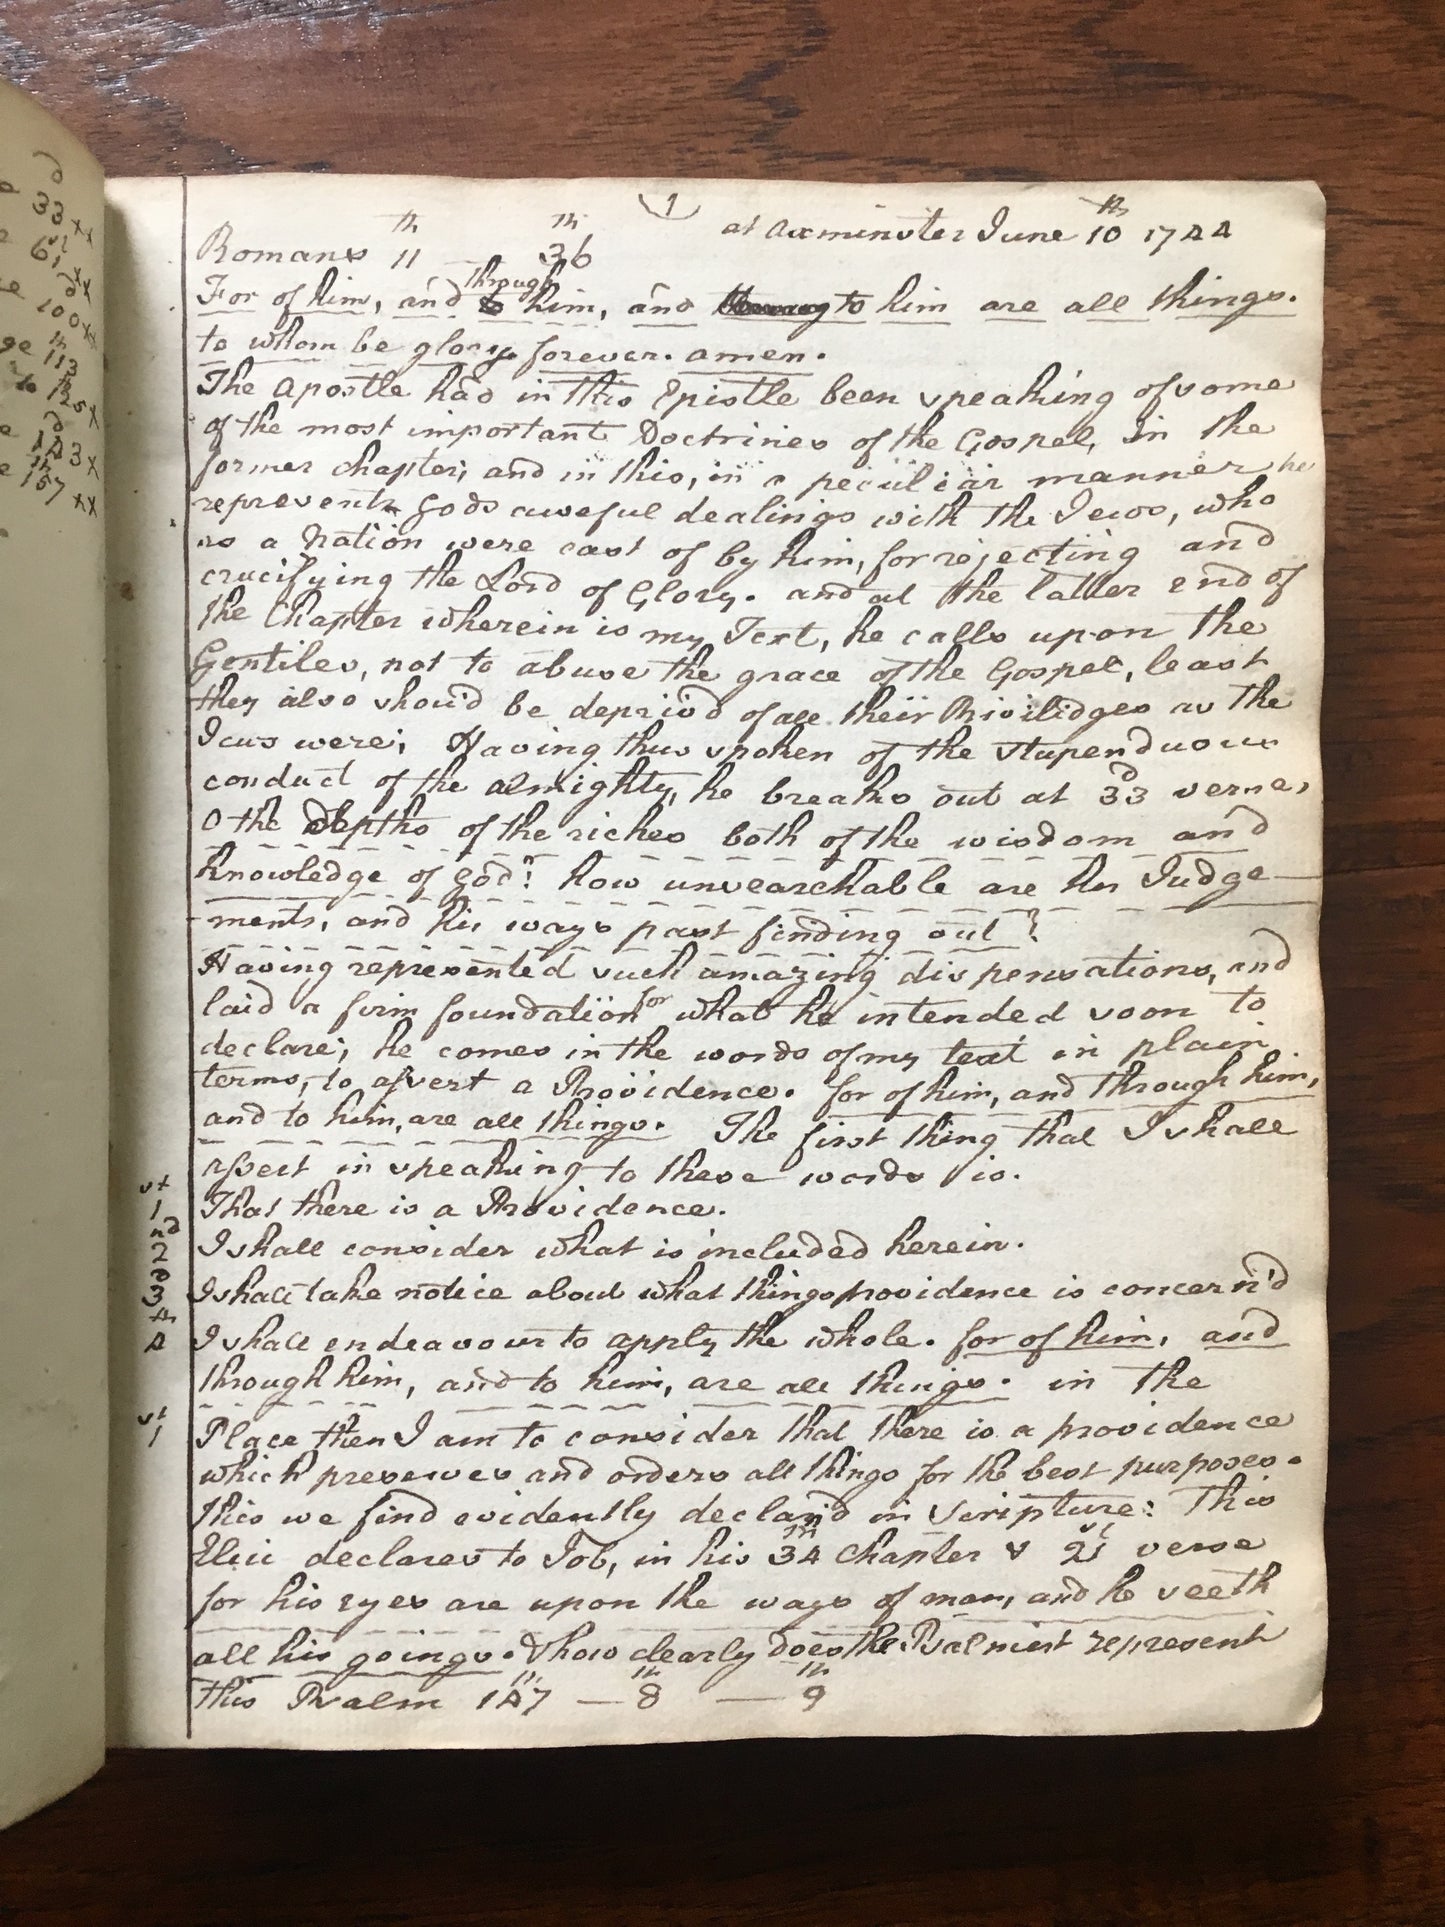 d
33 xx
st
61
d xx
100 xx
th
113
th
125 x
d
143 x
th
167 xx
1
at axminster June 10th 1744
Romans 11th 36th
through
For of him, and to him, and to him are all things.
to whom be glory forever. amen.
The apostle had in this Epistle been speaking of some
of the most important Doctrines of the Gospel, in the
former chapter; and in this, in a peculiar manner he
represents gods aweful dealings with the Jews, who
as a Nation were cast of by him, for rejecting and
crucifying the Lord of Glory. and at the latter end of
the Chapter wherein is my Text, he calls upon the
Gentiles, not to abuse the grace of the Gospel, least
they also shou'd be depriv'd of all their Privilidges as the
Jews were; Having thus spoken of the stupenduous
conduct of the almighty, he breaks out at 33d verse,
O the depths of the riches both of the wisdom and
knowledge of god! how unsearchable are his Judge-
-ments, and his ways past finding out!
Having represented such amazing dispensations, and
laid a firm foundation for what he intended soon to
declare; he comes in the words of my text in plain
terms, to assert a Providence. for of him, and through him,
and to him, are all things. The first thing that I shall
assert in speaking to these words is.
1st That there is a Providence.
2nd I shall consider what is included herein.
3d I shall take notice about what things providence is concern'd
4th I shall endeavour to apply the whole. for of him, and
through him, and to him, are all things. in the
1st Place then I am to consider that there is a providence
which preserves and orders all things for the best purposes.
this we find evidently declar'd in Scripture: This
Elii declares to Job, in his 34th Chapter & 21st verse
for his eyes are upon the ways of man, and he seeth
all his goings. & how clearly does the Psalmist represent
this Psalm 147th — 8th — 9th